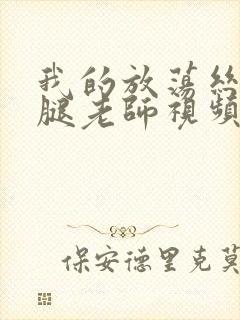 我的放荡絲
腿老師視頻
保安德里克莫